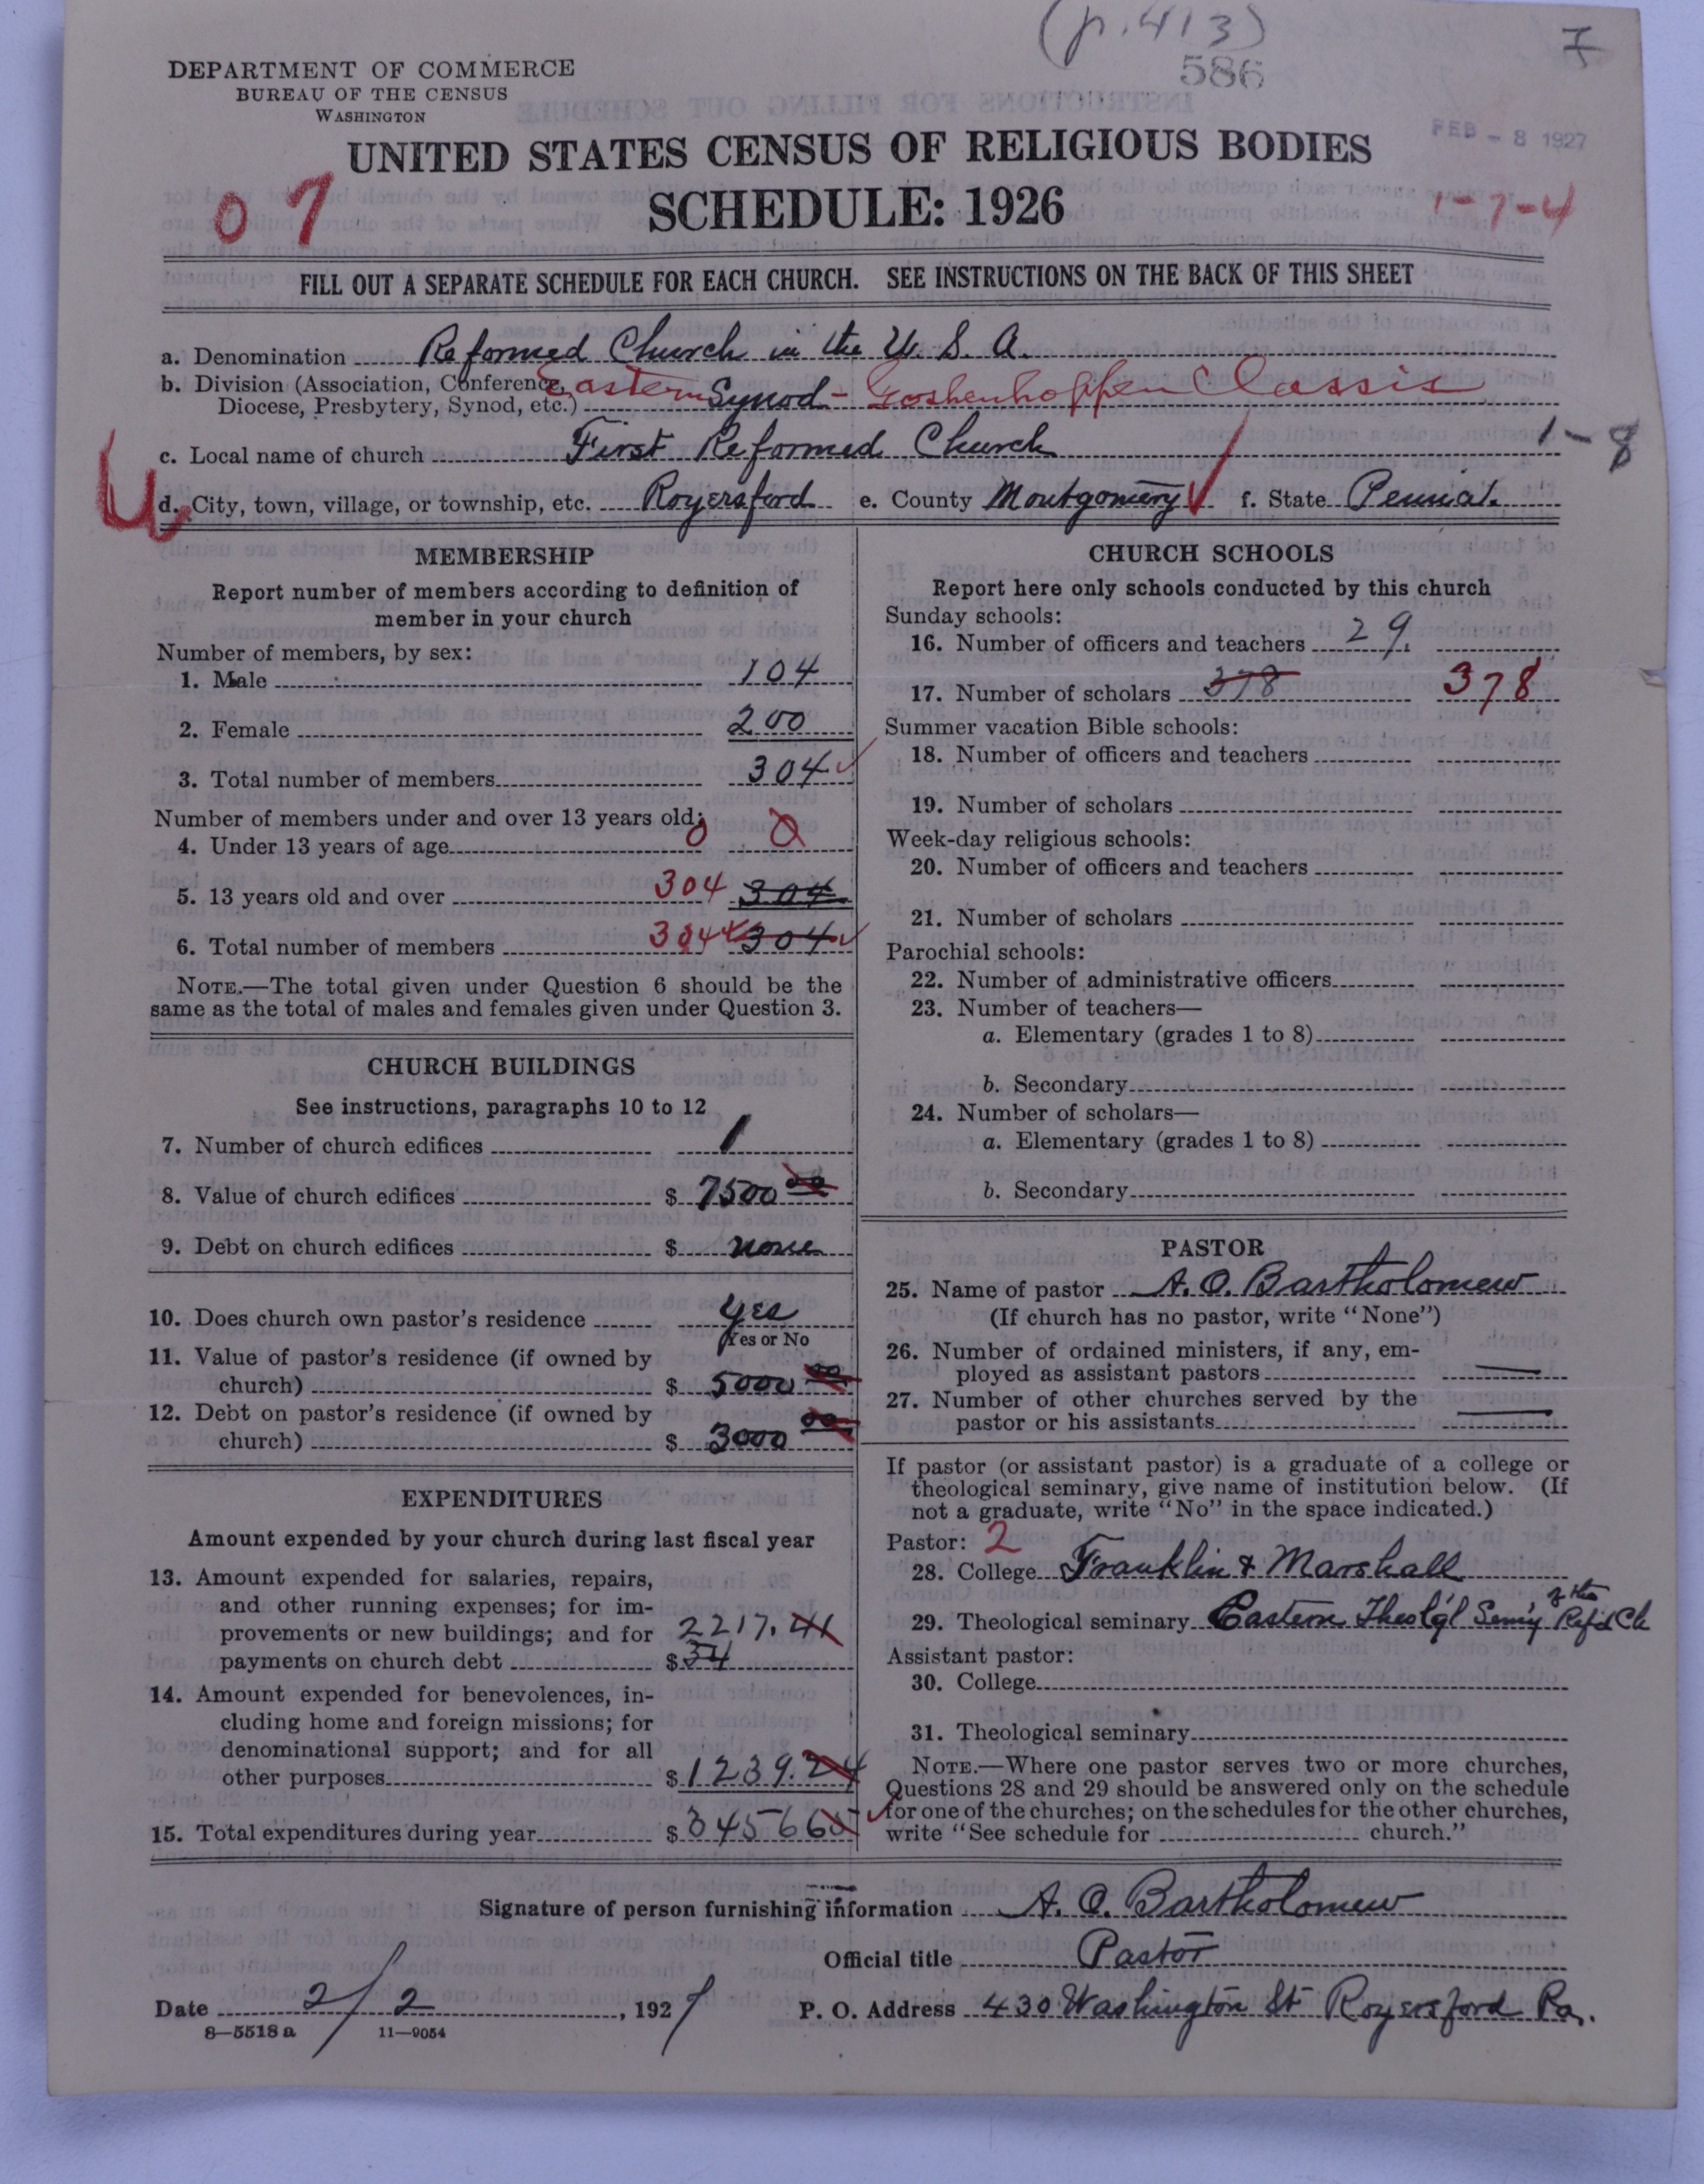 (p. 413)
7
586
DEPARTMENT OF COMMERCE
BUREAU OF THE CENSUS
WASHINGTON
FEB - 8 1927
UNITED STATES CENSUS OF RELIGIOUS BODIES
SCHEDULE: 1926
07
1-7-4
FILL OUT A SEPARATE SCHEDULE FOR EACH CHURCH. SEE INSTRUCTIONS ON THE BACK OF THIS SHEET
a. Denomination Reformed Church in the U. S. A.
b. Division (Association, Conference, Diocese, Presbytery, Synod, etc.) Eastern Synod - Goshenhoppen Classis
c. Local name of church First Reformed Church
1-8
d. City, town, village, or township, etc. Royersford e. County Montgomery f. State Penna.
MEMBERSHIP
Report number of members according to definition of
member in your church
Number of members, by sex:
1. Male 104
2. Female 200
3. Total number of members 304
Number of members under and over 13 years old:
4. Under 13 years of age 0 0
5. 13 years old and over 304 304
6. Total number of members 304 304
NOTE.—The total given under Question 6 should be the
same as the total of males and females given under Question 3.
CHURCH BUILDINGS
See instructions, paragraphs 10 to 12
7. Number of church edifices 1
8. Value of church edifices $ 7500 00
9. Debt on church edifices $ none
10. Does church own pastor's residence yes
Yes or No
11. Value of pastor's residence (if owned by
church) $ 5000 00
12. Debt on pastor's residence (if owned by
church) $ 3000 00
EXPENDITURES
Amount expended by your church during last fiscal year
13. Amount expended for salaries, repairs,
and other running expenses; for im-
provements or new buildings; and for 2217.41
payments on church debt $ 34
14. Amount expended for benevolences, in-
cluding home and foreign missions; for
denominational support; and for all
other purposes $ 1239.24
15. Total expenditures during year $ 345665
CHURCH SCHOOLS
Report here only schools conducted by this church
Sunday schools:
16. Number of officers and teachers 29.
17. Number of scholars 378 378
Summer vacation Bible schools:
18. Number of officers and teachers
19. Number of scholars
Week-day religious schools:
20. Number of officers and teachers
21. Number of scholars
Parochial schools:
22. Number of administrative officers
23. Number of teachers—
a. Elementary (grades 1 to 8)
b. Secondary
24. Number of scholars—
a. Elementary (grades 1 to 8)
b. Secondary
PASTOR
25. Name of pastor A. O. Bartholomew
(If church has no pastor, write "None")
26. Number of ordained ministers, if any, em-
ployed as assistant pastors —
27. Number of other churches served by the
pastor or his assistants —
If pastor (or assistant pastor) is a graduate of a college or
theological seminary, give name of institution below. (If
not a graduate, write "No" in the space indicated.)
Pastor: 2
28. College Franklin & Marshall
29. Theological seminary Eastern Theol'gl Sem'y of the Ref'd Ch
Assistant pastor:
30. College
31. Theological seminary
NOTE.—Where one pastor serves two or more churches,
Questions 28 and 29 should be answered only on the schedule
for one of the churches; on the schedules for the other churches,
write "See schedule for church."
Signature of person furnishing information A. O. Bartholomew
Official title Pastor
Date 2/2, 1927 P. O. Address 430 Washington St Royersford Pa.
8—5518 a 11—9054